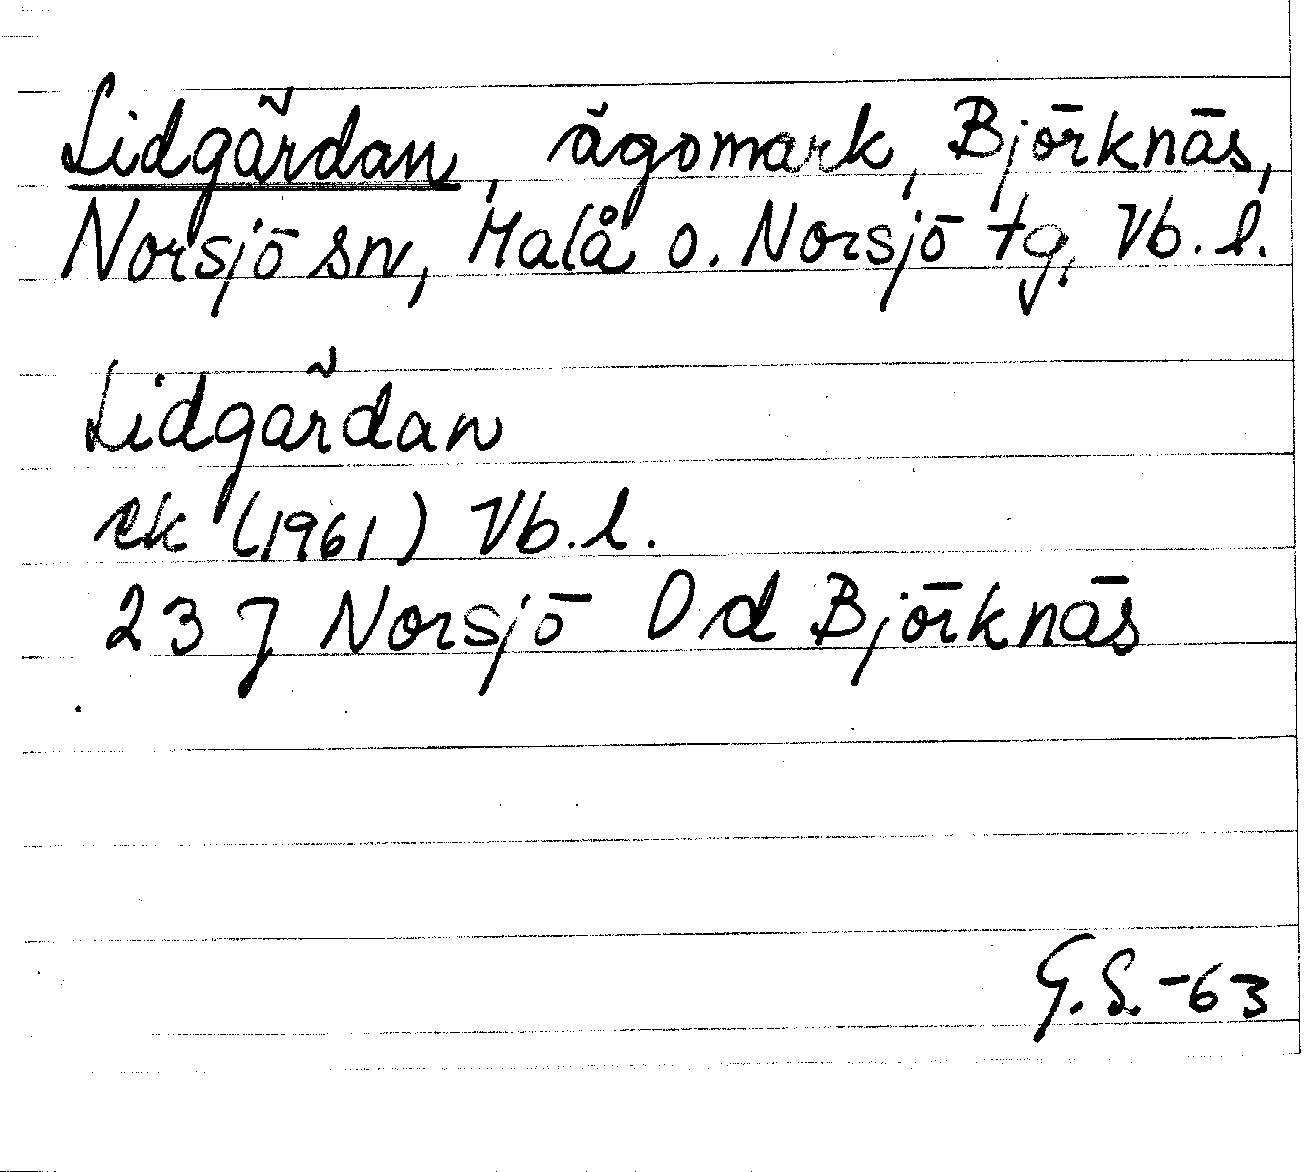 Lidgårdan, ägomark, Björknäs,
Norsjö sn, Malå o. Norsjö tg, Vb. l.
Lidgårdan
ek (1961) Vb. l.
23 J Norsjö Od Björknäs
G. S. -63